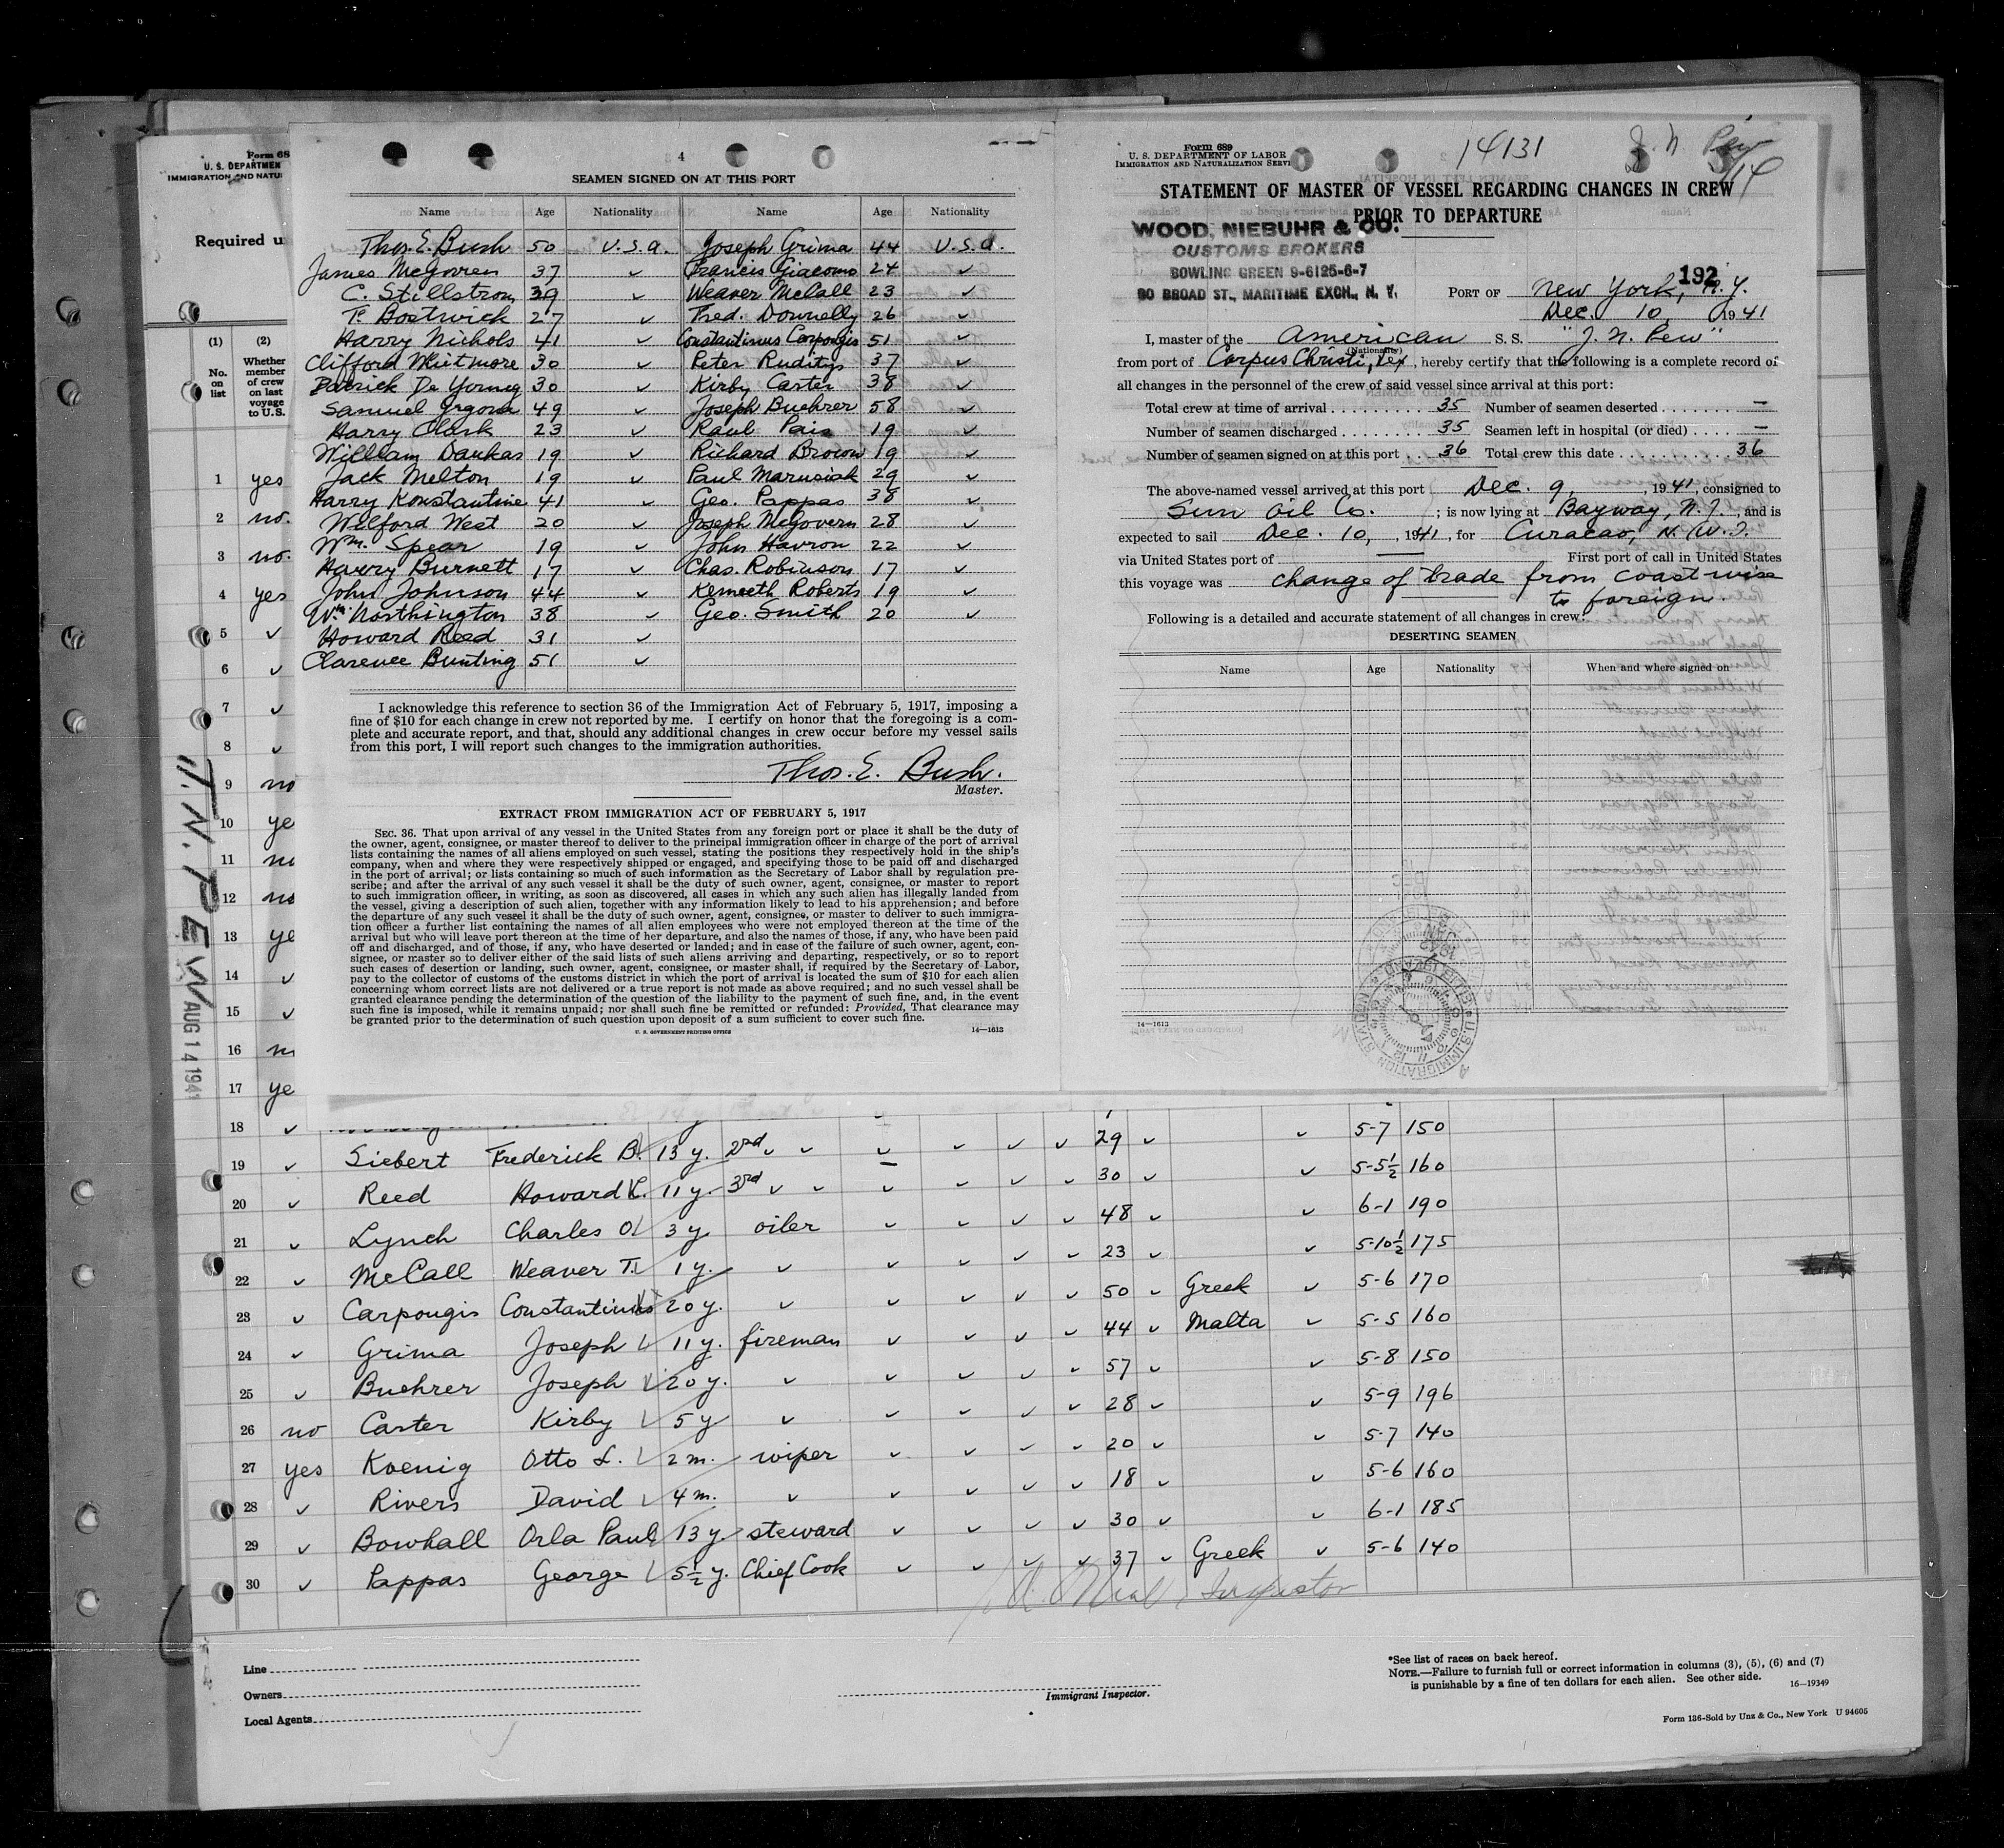 Form 68
U. S. DEPARTMEN
IMMIGRATION AND NATU
Required u
(1) (2)
No. on list
Whether member of crew on last voyage to U.S.
1 yes
2 no.
3 no.
4 yes
5 ✓
6 ✓
7 ✓
8 ✓
9 no
10 ye
11 no
12 no
13 ye
14 ✓
15 ✓
16 no
17 ye
J. N. PEW
AUG 14 1941
4
SEAMEN SIGNED ON AT THIS PORT
Name Age Nationality Name Age Nationality
Thos. E. Bush 50 U.S.A. Joseph Grima 44 U.S.A.
James McGovren 37 ✓ Francis Giacomo 24 ✓
C. Stillstrom 39 ✓ Weaver McCall 23 ✓
T. Bostwick 27 ✓ Fred. Donnelly 26 ✓
Harry Nichols 41 ✓ Constantinus Carpougis 51 ✓
Clifford Whitmore 30 ✓ Peter Ruditys 37 ✓
Patrick De Young 30 ✓ Kirby Carter 38 ✓
Samuel 49 ✓ Joseph Buehrer 58 ✓
Harry Clark 23 ✓ Raul Pais 19 ✓
William Daukas 19 ✓ Richard Brown 19 ✓
Jack Melton 19 ✓ Paul Marusiak 29 ✓
Harry Konstantine 41 ✓ Geo. Pappas 38 ✓
Wilford West 20 ✓ Joseph McGovern 28 ✓
Wm. Spear 19 ✓ John Havron 22 ✓
Harry Burnett 17 ✓ Chas. Robinson 17 ✓
John Johnson 44 ✓ Kenneth Roberts 19 ✓
Wm. Northington 38 ✓ Geo. Smith 20 ✓
Howard Reed 31 ✓
Clarence Bunting 51 ✓
I acknowledge this reference to section 36 of the Immigration Act of February 5, 1917, imposing a
fine of $10 for each change in crew not reported by me. I certify on honor that the foregoing is a com-
plete and accurate report, and that, should any additional changes in crew occur before my vessel sails
from this port, I will report such changes to the immigration authorities.
Thos. E. Bush.
Master.
EXTRACT FROM IMMIGRATION ACT OF FEBRUARY 5, 1917
SEC. 36. That upon arrival of any vessel in the United States from any foreign port or place it shall be the duty of
the owner, agent, consignee, or master thereof to deliver to the principal immigration officer in charge of the port of arrival
lists containing the names of all aliens employed on such vessel, stating the positions they respectively hold in the ship's
company, when and where they were respectively shipped or engaged, and specifying those to be paid off and discharged
in the port of arrival; or lists containing so much of such information as the Secretary of Labor shall by regulation pre-
scribe; and after the arrival of any such vessel it shall be the duty of such owner, agent, consignee, or master to report
to such immigration officer, in writing, as soon as discovered, all cases in which any such alien has illegally landed from
the vessel, giving a description of such alien, together with any information likely to lead to his apprehension; and before
the departure of any such vessel it shall be the duty of such owner, agent, consignee, or master to deliver to such immigra-
tion officer a further list containing the names of all alien employees who were not employed thereon at the time of the
arrival but who will leave port thereon at the time of her departure, and also the names of those, if any, who have been paid
off and discharged, and of those, if any, who have deserted or landed; and in case of the failure of such owner, agent, con-
signee, or master so to deliver either of the said lists of such aliens arriving and departing, respectively, or so to report
such cases of desertion or landing, such owner, agent, consignee, or master shall, if required by the Secretary of Labor,
pay to the collector of customs of the customs district in which the port of arrival is located the sum of $10 for each alien
concerning whom correct lists are not delivered or a true report is not made as above required; and no such vessel shall be
granted clearance pending the determination of the question of the liability to the payment of such fine, and, in the event
such fine is imposed, while it remains unpaid; nor shall such fine be remitted or refunded: Provided, That clearance may
be granted prior to the determination of such question upon deposit of a sum sufficient to cover such fine.
U. S. GOVERNMENT PRINTING OFFICE 14—1613
Form 689
U. S. DEPARTMENT OF LABOR
IMMIGRATION AND NATURALIZATION SERVI
14131
J. N. Pew
3/14
STATEMENT OF MASTER OF VESSEL REGARDING CHANGES IN CREW
PRIOR TO DEPARTURE
WOOD, NIEBUHR & CO.
CUSTOMS BROKERS
BOWLING GREEN 9-6125-6-7
80 BROAD ST., MARITIME EXCH., N. Y.
192
PORT OF New York, N. Y.
Dec. 10, 1941
I, master of the American S. S. "J. N. Pew"
(Nationality)
from port of Corpus Christi, Tex, hereby certify that the following is a complete record of
all changes in the personnel of the crew of said vessel since arrival at this port:
Total crew at time of arrival 35 Number of seamen deserted —
Number of seamen discharged 35 Seamen left in hospital (or died) —
Number of seamen signed on at this port 36 Total crew this date 36
The above-named vessel arrived at this port Dec. 9, 1941, consigned to
Sun Oil Co. ; is now lying at Bayway, N. J., and is
expected to sail Dec. 10, 1941, for Curacao, N. W. I.
via United States port of —— First port of call in United States
this voyage was change of trade from coastwise
to foreign.
Following is a detailed and accurate statement of all changes in crew:
DESERTING SEAMEN
Name Age Nationality When and where signed on
14—1613
18 ✓ 29 ✓ ✓ 5-7 150
19 ✓ Siebert Frederick B. 13 y. 2nd ✓ ✓ ✓ ✓ ✓ ✓ 30 ✓ ✓ 5-5½ 160
20 ✓ Reed Howard K. 11 y. 3rd ✓ ✓ ✓ ✓ ✓ ✓ 48 ✓ ✓ 6-1 190
21 ✓ Lynch Charles O. 3 y. oiler ✓ ✓ ✓ ✓ 23 ✓ ✓ 5-10½ 175
22 ✓ McCall Weaver T. 1 y. ✓ ✓ ✓ ✓ ✓ 50 ✓ Greek ✓ 5-6 170
23 ✓ Carpougis Constantinus 20 y. ✓ ✓ ✓ ✓ ✓ 44 ✓ Malta ✓ 5-5 160
24 ✓ Grima Joseph 11 y. fireman ✓ ✓ ✓ ✓ 57 ✓ ✓ 5-8 150
25 ✓ Buehrer Joseph 20 y. ✓ ✓ ✓ ✓ ✓ 28 ✓ ✓ 5-9 196
26 no Carter Kirby 5 y ✓ ✓ ✓ ✓ ✓ 20 ✓ ✓ 5-7 140
27 yes Koenig Otto L. 2 m. wiper ✓ ✓ ✓ ✓ 18 ✓ ✓ 5-6 160
28 ✓ Rivers David 4 m. ✓ ✓ ✓ ✓ ✓ 30 ✓ ✓ 6-1 185
29 ✓ Bowhall Orla Paul 13 y. steward ✓ ✓ ✓ ✓ 37 ✓ Greek ✓ 5-6 140
30 ✓ Pappas George 5½ y. Chief Cook ✓ ✓ ✓ ✓
Inspector
Line
Owners
Local Agents
Immigrant Inspector.
*See list of races on back hereof.
NOTE.—Failure to furnish full or correct information in columns (3), (5), (6) and (7)
is punishable by a fine of ten dollars for each alien. See other side. 16—19349
Form 136-Sold by Unz & Co., New York U 94605